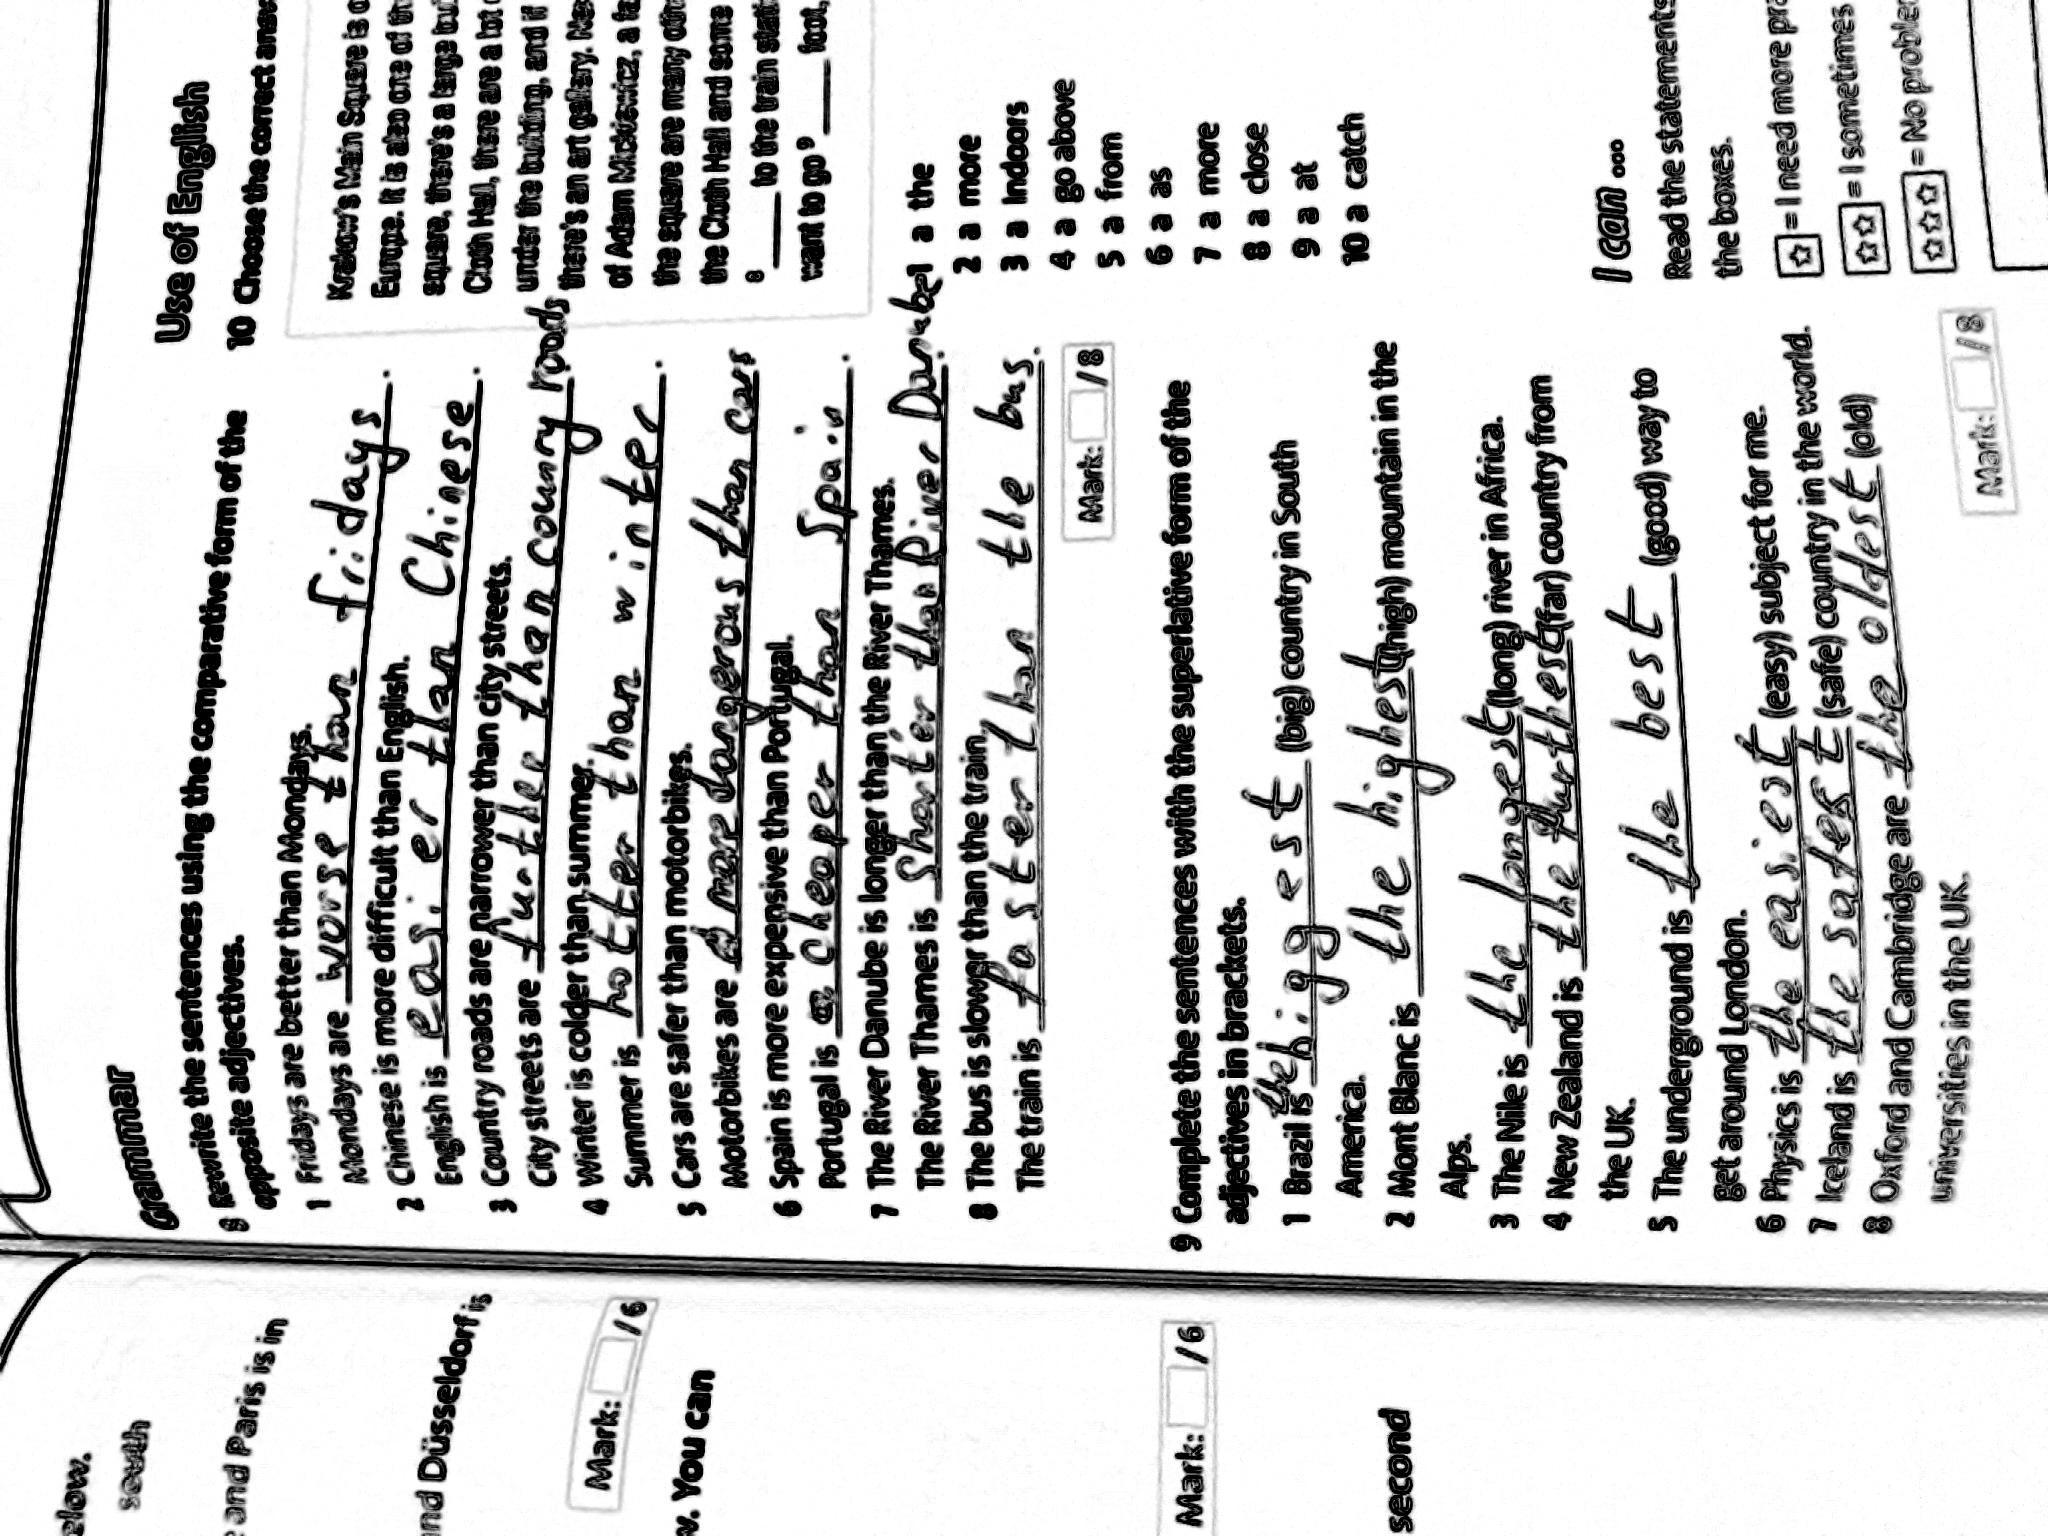 elow.
south
and Paris is in
and Düsseldorf is
Mark: /6
w. You can
Mark: /6
second
Grammar
8 Rewrite the sentences using the comparative form of the
opposite adjectives.
1 Fridays are better than Mondays.
Mondays are worse than fridays.
2 Chinese is more difficult than English.
English is easier than Chinese.
3 Country roads are narrower than city streets.
City streets are than country roads.
4 Winter is colder than summer.
Summer is hotter than winter.
5 Cars are safer than motorbikes.
Motorbikes are more dangerous than cars
6 Spain is more expensive than Portugal.
Portugal is cheaper than Spain.
7 The River Danube is longer than the River Thames.
The River Thames is shorter than River Danube.
8 The bus is slower than the train.
The train is faster than the bus.
Mark: /8
9 Complete the sentences with the superlative form of the
adjectives in brackets.
1 Brazil is the biggest (big) country in South
America.
2 Mont Blanc is the highest (high) mountain in the
Alps.
3 The Nile is the longest (long) river in Africa.
4 New Zealand is the furthest (far) country from
the UK.
5 The underground is the best (good) way to
get around London.
6 Physics is the easiest (easy) subject for me.
7 Iceland is the safest (safe) country in the world.
8 Oxford and Cambridge are the oldest (old)
universities in the UK.
Mark: /8
Use of English
10 Choose the correct answ
Krakow's Main Square is o
Europe. It is also one of th
square, there's a large bui
Cloth Hall, there are a lot o
under the building, and if
there's an art gallery. Nea
of Adam Mickiewicz, a fa
the square are many othe
the Cloth Hall and some
8 ____ to the train stati
want to go 9 ____ foot,
1 a the
2 a more
3 a Indoors
4 a go above
5 a from
6 a as
7 a more
8 a close
9 a at
10 a catch
I can ...
Read the statements
the boxes.
= I need more pra
= I sometimes
= No problem